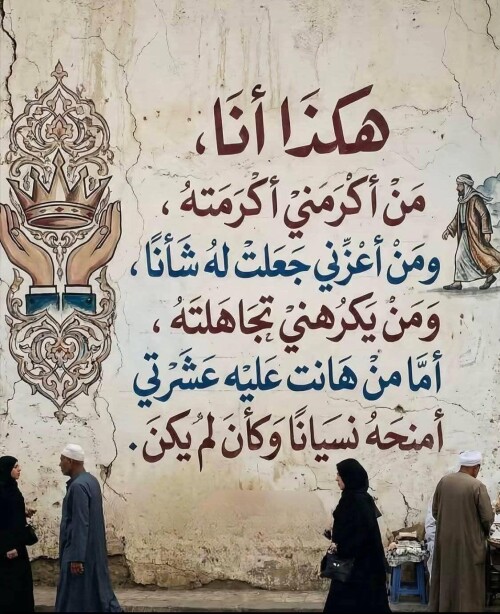 هكذَا أنَا،
مَنْ أكْرَمَنيْ أكْرَمَتهُ،
ومَنْ أعْزّني جَعَلتْ لهُ شَأنًا،
وَمَنْ يَكرُهنيْ تجَاهَلتَهُ،
أمَّا منْ هَانت عَليْه عَشَرْتي
أمنحَهُ نسيَانًا وَكأنَ لمْ يُكنَ.